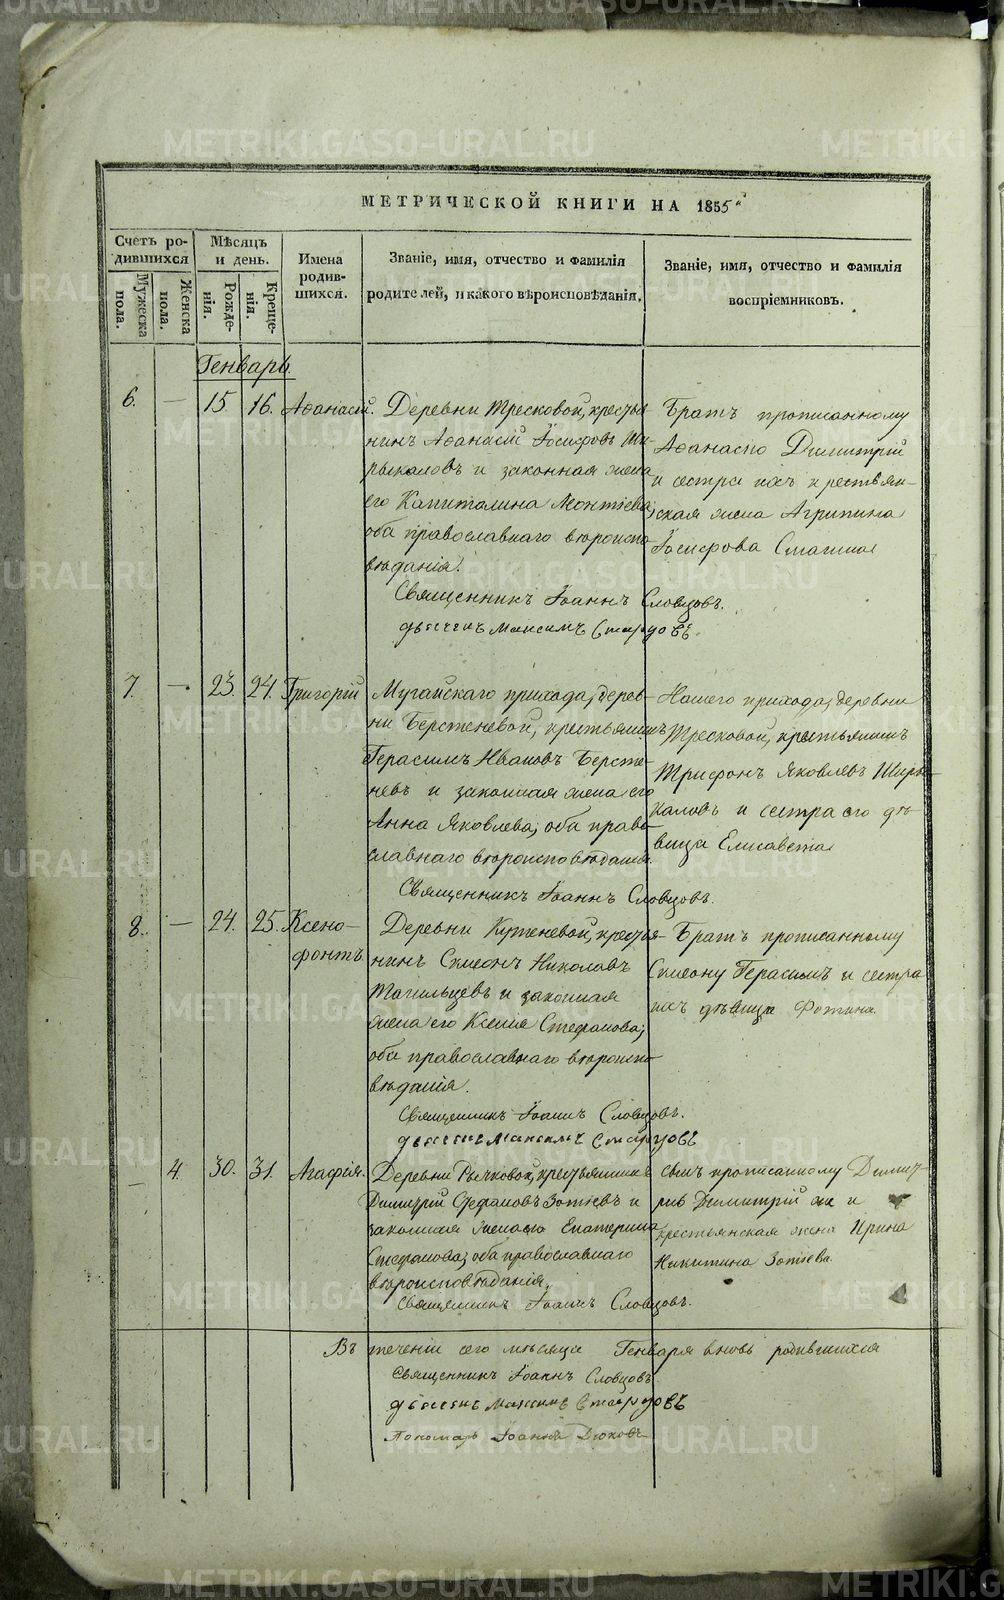 METRIKI.GASO-URAL.RU
МЕТРИЧЕСКОЙ КНИГИ НА 1855
Счетъ родившихся
Мѣсяцъ и день.
Имена родившихся.
Званіе, имя, отчество и фамилія родителей, и какого вѣроисповѣданія.
Званіе, имя, отчество и фамилія воспріемниковъ.
Мужеска пола.
Женска пола.
Рожденія.
Крещенія.
Генварь.
6. — 15. 16. Аѳанасій.
Деревни Тресковой, крестья
нинъ Аѳанасій Іосифовъ Ши-
рыкаловъ и законная жена
его Капиталина Леонтіева,
оба православнаго вѣроиспо
вѣданія.
Братъ прописанному
Аѳанасію Димитрій
и сестра ихъ крестьян-
ская жена Агрипина
Іосифова Смагина
Священникъ Іоаннъ Словцовъ.
дьячекъ Максимъ Стар
7. — 23. 24. Григорій
Мугайскаго прихода, дерев-
ни Берстеневой, крестьянинъ
Герасимъ Ивановъ Берсте-
невъ и законная жена его
Анна Яковлева, оба право-
славнаго вѣроисповѣданія.
Нашего прихода, деревни
Тресковой, крестьянинъ
Трифонъ Яковлевъ Широ-
каловъ и сестра его дѣ-
вица Елисавета
Священникъ Іоаннъ Словцовъ.
8. — 24. 25. Ксено-
фонтъ
Деревни Кутеневой, крестья-
нинъ Симеонъ Николаевъ
Тагильцевъ и законная
жена его Ксенія Стефанова,
оба православнаго вѣроиспо-
вѣданія.
Братъ прописанному
Симеону Герасимъ и сестра
ихъ дѣвица Фотина
Священникъ Іоаннъ Словцовъ.
дьячекъ Максимъ Стар
— 4. 30. 31. Агафія.
Деревни Рычковой, крестьянинъ
Димитрій Стефановъ Зотѣевъ и
законная жена его Екатерина
Стефанова, оба православнаго
вѣроисповѣданія.
сынъ прописанному Димит-
рію Димитрій же и
крестьянская жена Ирина
Никитина Зотѣева.
Священникъ Іоаннъ Словцовъ.
Въ теченіи сего мѣсяца Генваря вновь родившихся
Священникъ Іоаннъ Словцовъ.
дьячекъ Максимъ Стар
Пономарь Іоаннъ Дюковъ